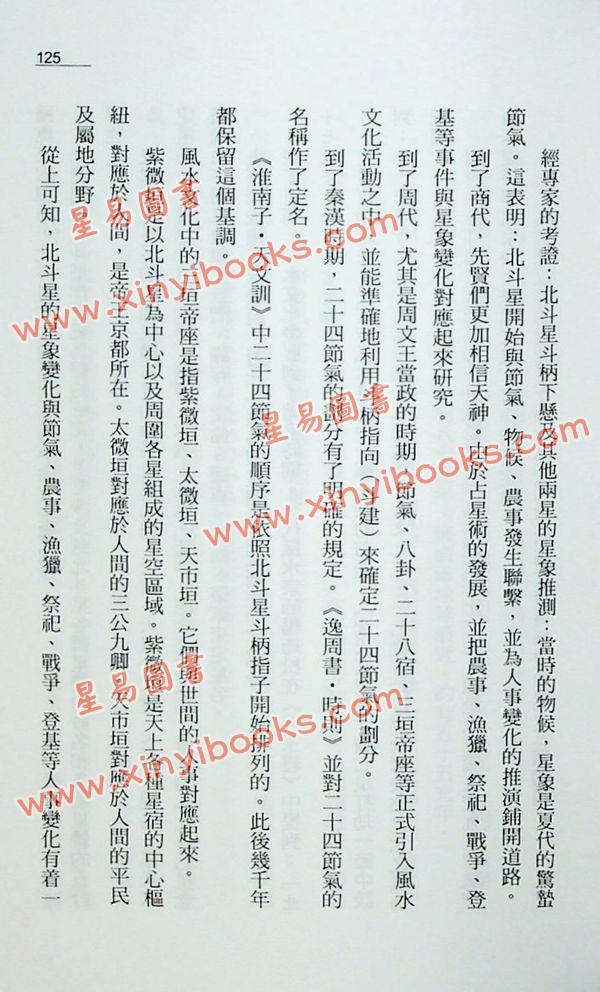 125
經專家的考證：北斗星斗柄下懸及其他兩星的星象推測：當時的物候，星象是夏代的驚蟄
節氣。這表明：北斗星開始與節氣、物候、農事發生聯繫，並為人事變化的推演鋪開道路。
到了商代，先賢們更加相信天神。由於占星術的發展，並把農事、漁獵、祭祀、戰爭、登
基等事件與星象變化對應起來研究。
到了周代，尤其是周文王當政的時期，節氣、八卦、二十八宿、三垣帝座等正式引入風水
文化活動之中，並能準確地利用斗柄指向（斗建）來確定二十四節氣的劃分。
到了秦漢時期，二十四節氣的劃分有了明確的規定。《逸周書·時則》並對二十四節氣的
名稱作了定名。
《淮南子·天文訓》中二十四節氣的順序是依照北斗星斗柄指子開始排列的。此後幾千年
都保留這個基調。
風水文化中的三垣帝座是指紫微垣、太微垣、天市垣。它們與世間的人事對應起來。
紫微垣是以北斗星為中心以及周圍各星組成的星空區域。紫微垣是天上各種星宿的中心樞
紐，對應於人間，是帝王京都所在。太微垣對應於人間的三公九卿，天市垣對應於人間的平民
及屬地分野。
從上可知，北斗星的星象變化與節氣、農事、漁獵、祭祀、戰爭、登基等人事變化有着一
星易圖書
www.xinyibooks.com
星易圖書
www.xinyibooks.com
星易圖書
www.xinyibooks.com